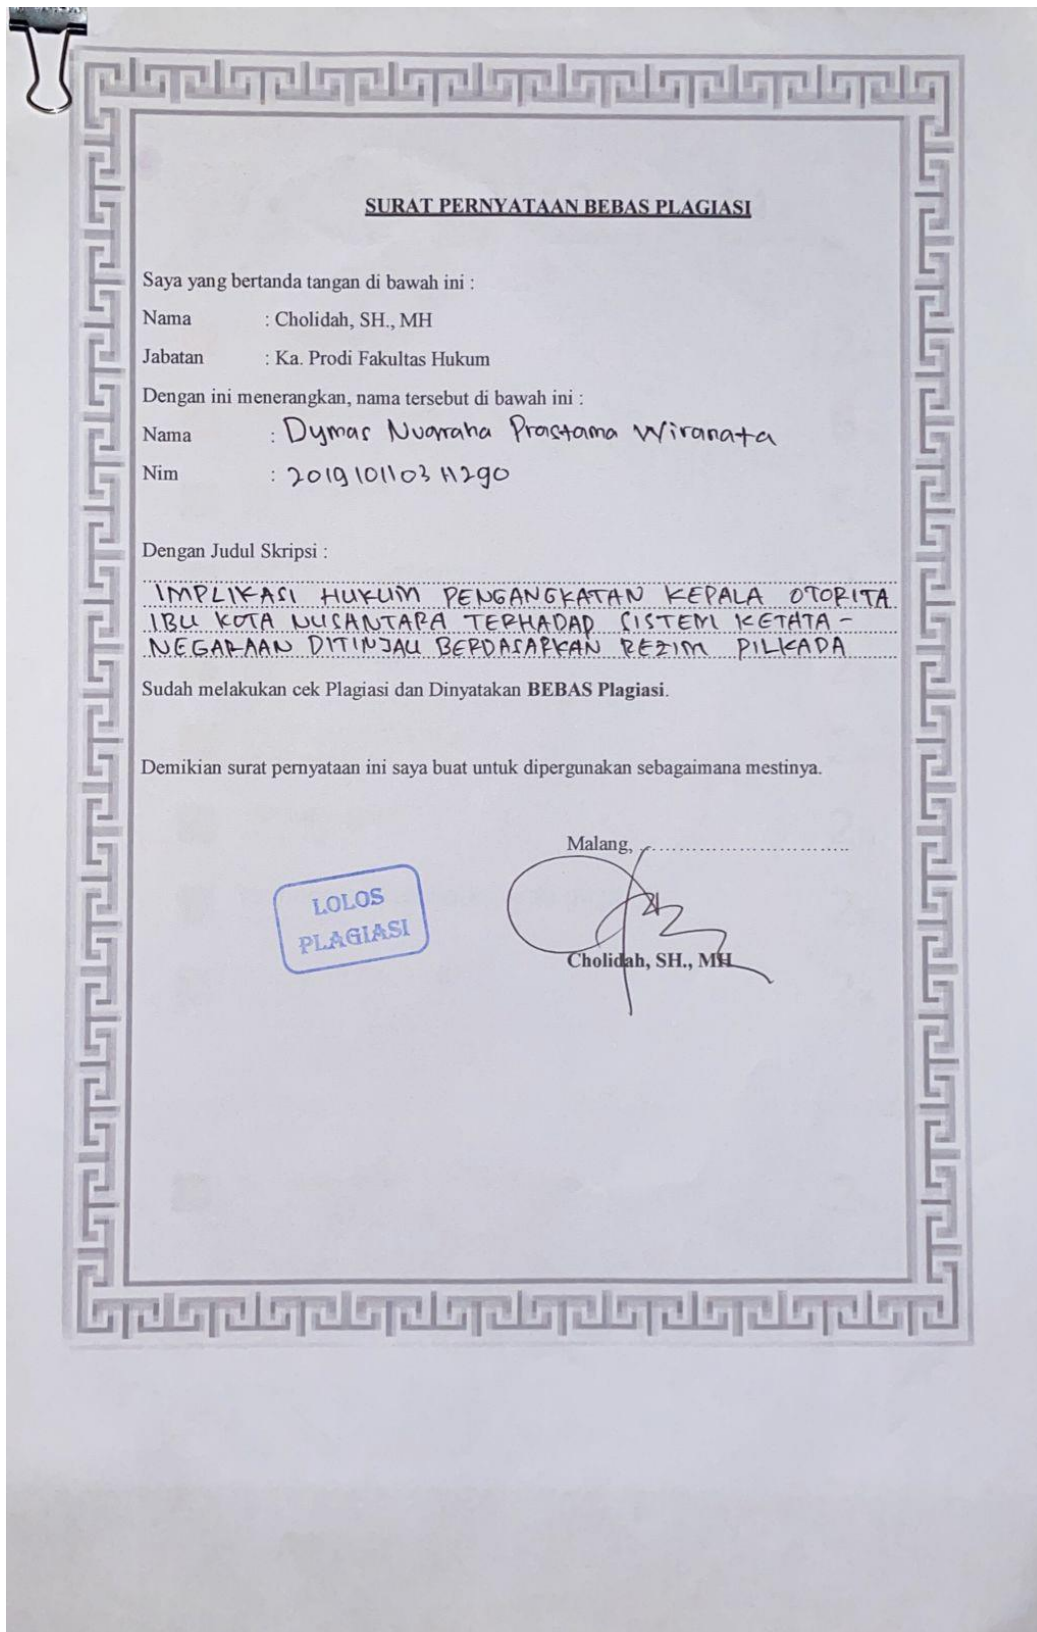 SURAT PERNYATAAN BEBAS PLAGIASI
Saya yang bertanda tangan di bawah ini :
Nama : Cholidah, SH., MH
Jabatan : Ka. Prodi Fakultas Hukum
Dengan ini menerangkan, nama tersebut di bawah ini :
Nama : Dymas Nugraha Prastama Wiranata
Nim : 201910110311290
Dengan Judul Skripsi :
IMPLIKASI HUKUM PENGANGKATAN KEPALA OTORITA
IBU KOTA NUSANTARA TERHADAP SISTEM KETATA-
NEGARAAN DITINJAU BERDASARKAN REZIM PILKADA
Sudah melakukan cek Plagiasi dan Dinyatakan BEBAS Plagiasi.
Demikian surat pernyataan ini saya buat untuk dipergunakan sebagaimana mestinya.
Malang, ..............................
LOLOS
PLAGIASI
Cholidah, SH., MH